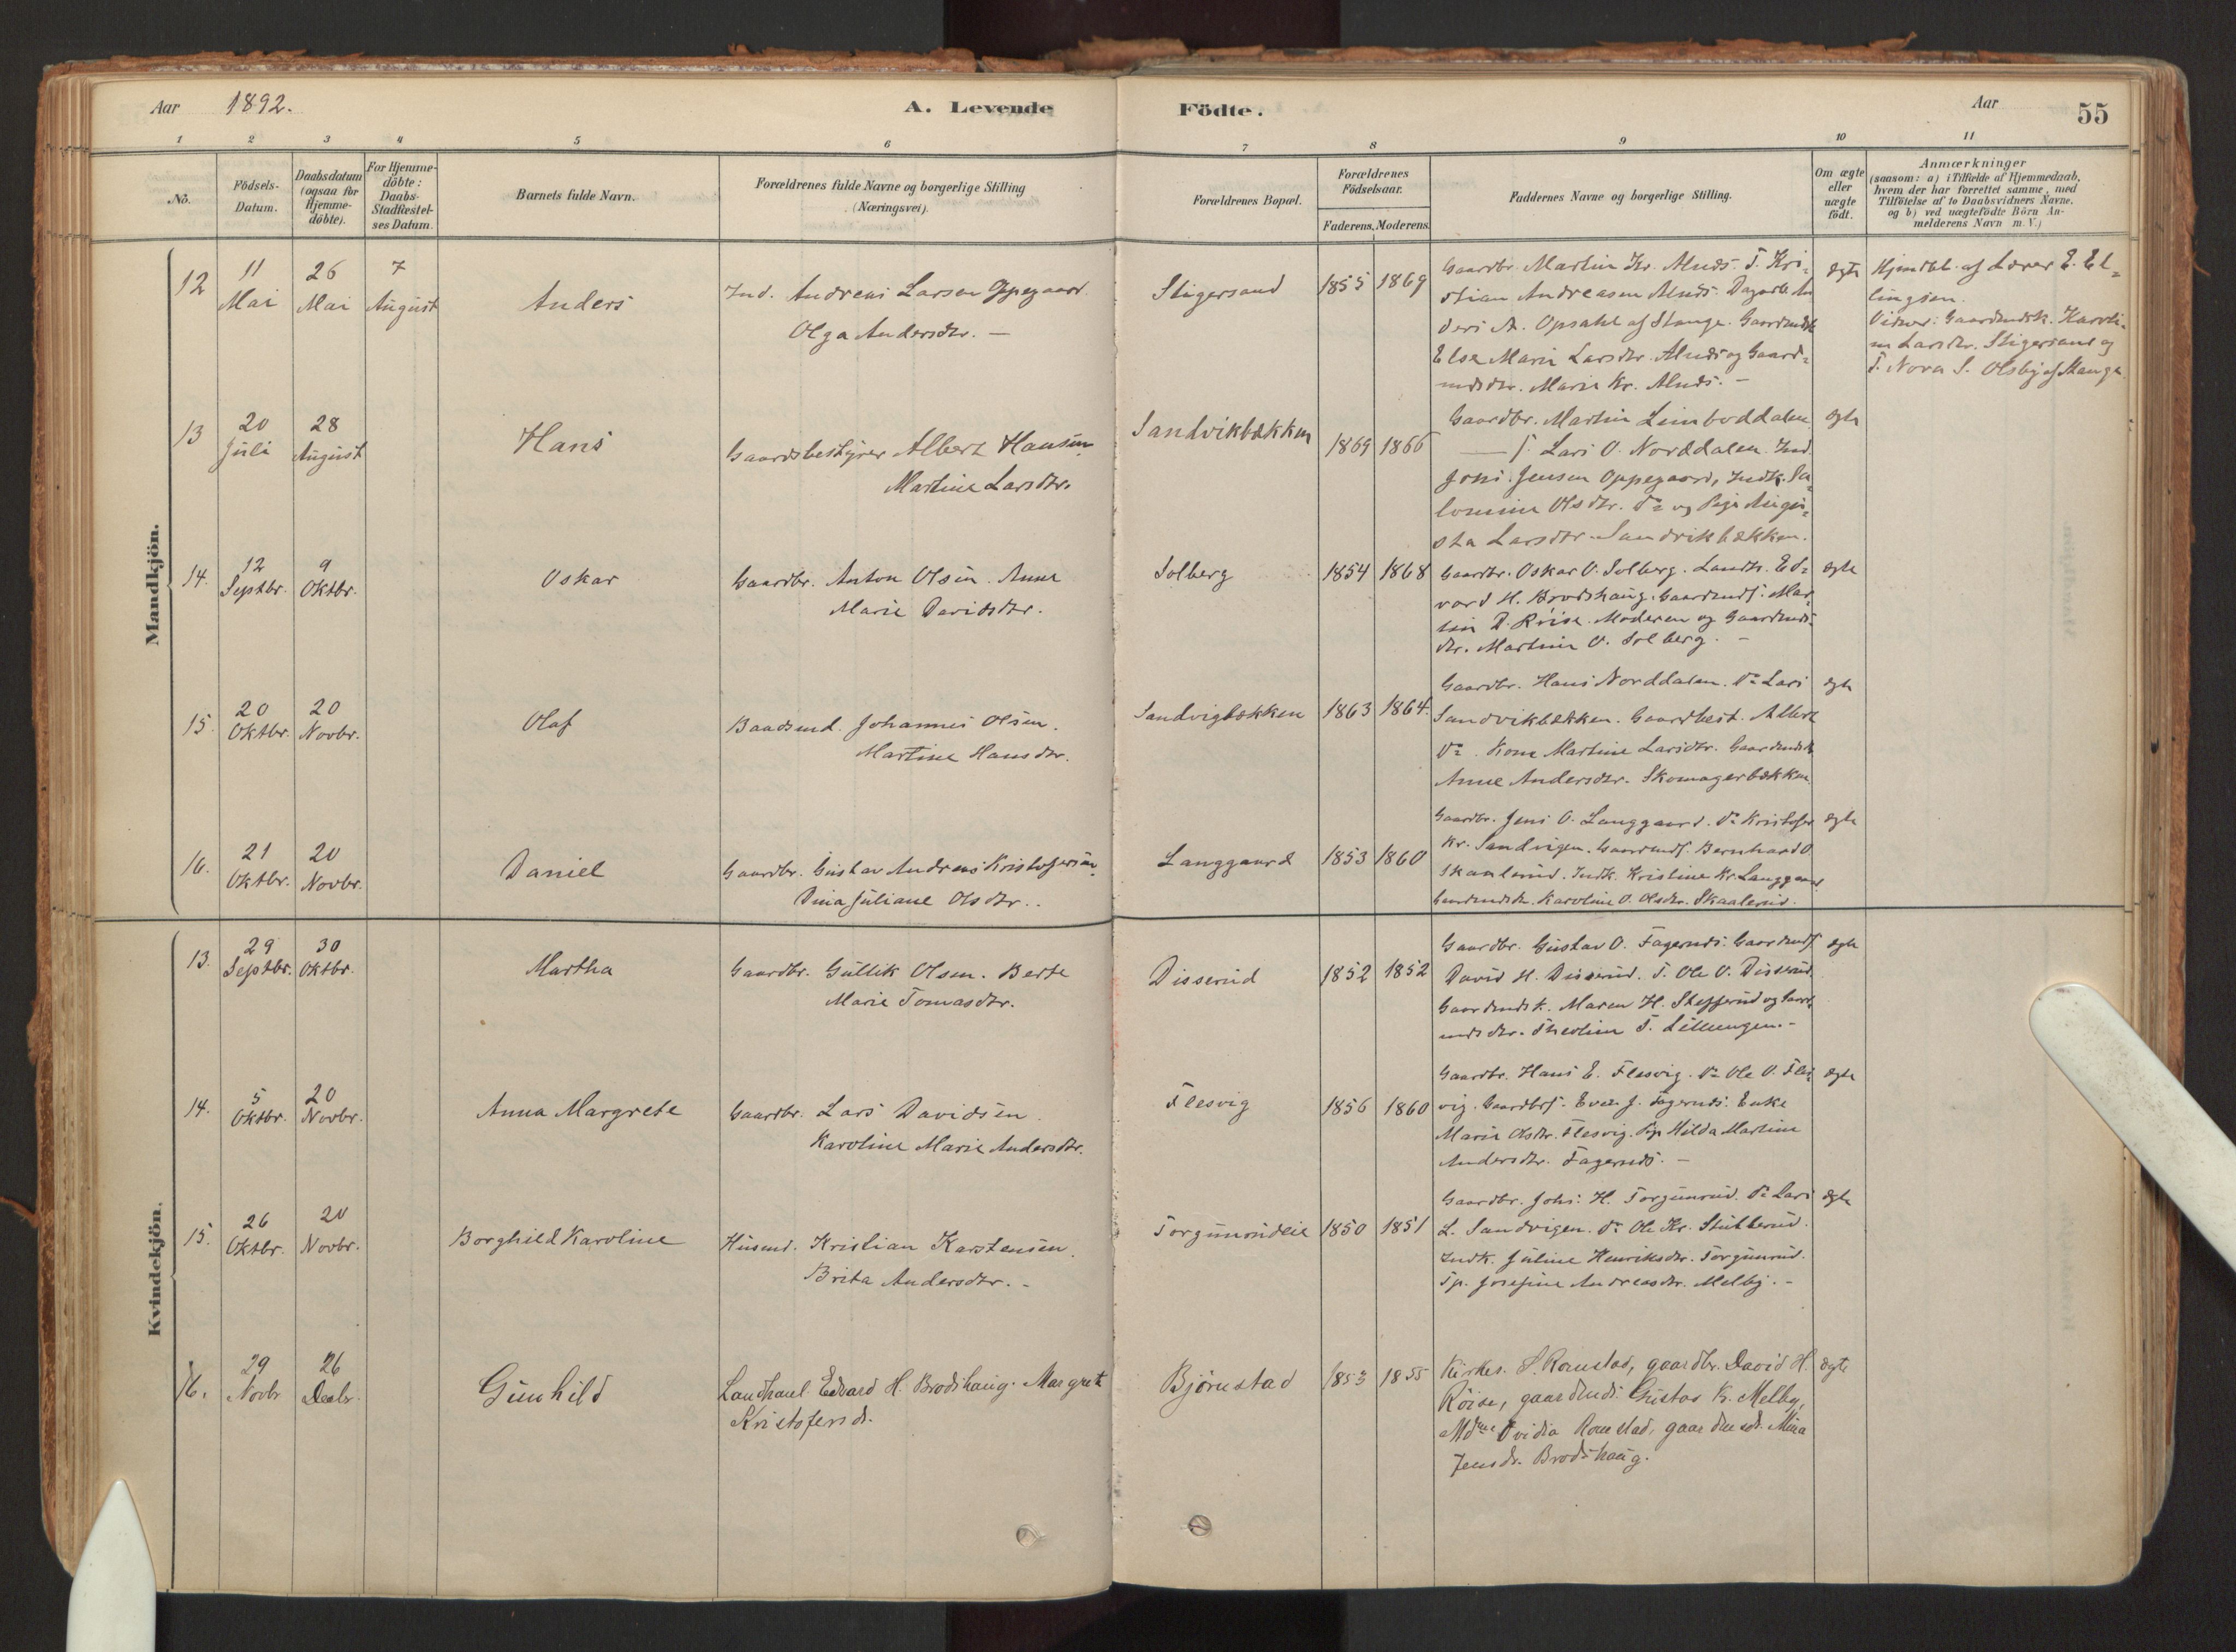 Aar 1892. A. Levende Födte. Aar 55
1 2 3 4 5 6 7 8 9 10 11
No.
Födsels-
Datum.
Daabsdatum
(ogsaa for
Hjemme-
döbte).
For Hjemme-
döbte:
Daabs-
Stadfæstel-
ses Datum.
Barnets fulde Navn.
Forældrenes fulde Navne og borgerlige Stilling
(Næringsvei).
Forældrenes Bopæl.
Forældrenes
Födselsaar.
Faderens. Moderens.
Faddernes Navne og borgerlige Stilling.
Om ægte
eller
uægte
födt.
Anmærkninger
(saasom: a) i Tilfælde af Hjemmedaab,
hvem der har forrettet samme, med
Tilföielse af to Daabsvidners Navne,
og b) ved uægtefödte Börn An-
melderens Navn m.V.)
Mandkjön.
12
11
Mai
26
Mai
7
August
Anders
Ind. Andreas Larsen Oppegaard.
Olga Andersdtr. —
Stigersand
1855 1869
Gaardbr. Martin Kr. Alnæs. T. Kri-
stian Andreasen Alnæs.
Opsahl af Stange.
Else Marie Larsdtr. Alnæs og Gaard-
mdsdtr. Marie Kr. Alnæs. —
ægte
Hjmdbt. af Lærer E. El-
lingsen.
Vidner: Gaardmdsk. Karoli-
ne Larsdtr. Stigersand og
T. Nora S. Olsby af Stange.
13
20
Juli
28
August
Hans
Gaardsbestyrer Albert Hansen
Martine Larsdtr.
Sandvikbækken
1869 1866
Gaardbr. Martin Linboddalen
Lars O. Norddalen. Ind.
Johs. Jensen Oppegaard, Indk. Pa-
Olsdtr. Do og Pige Augu-
sta Larsdtr. Sandvikbækken.
ægte
14.
12
Septbr.
9
Oktbr.
Oskar
Gaardbr. Anton Olsen. Anne
Marie Davidsdtr.
Solberg
1854 1868
Gaardbr. Oskar O. Solberg. Landh. Ed-
vard H. Brodshaug. Gaardmds. Mar-
tin D. Röise. Moderen og Gaardmds-
dtr. Martine O. Solberg. —
ægte
15.
20
Oktbr.
20
Novbr.
Olaf
Baadsmd. Johannes Olsen.
Martine Hansdtr.
Sandvigbækken
1863 1864.
Gaardbr. Hans Norddalen. Do Lars
Sandvikbækken. Gaardbest. Albert
Do. Kone Martine Larsdtr. Gaardmdsk.
Anne Andersdtr. Skomagerbækken
ægte
16.
21
Oktbr.
20
Novbr.
Daniel
Gaardbr. Gustav Andreas Kristofersen.
Dina Juliane Olsdtr..
Langgaard
1853 1860
Gaardbr. Jens O. Langgaard. Do Kristofer
Kr. Sandvigen. Gaardmds. Bernhard O.
Skaalerud. Indk. Kristine Kr. Langgaard
Karoline O. Olsdtr. Skaalerud.
ægte
Kvindekjön.
13.
29
Septbr.
30
Oktbr.
Martha
Gaardbr. Gullik Olsen. Berte
Marie Tomasdtr.
Disserud
1852 1852
Gaardbr. Gustav O. Fagernæs. Gaardmds.
David H. Disserud. T. Ole O. Disserud.
Gaardmdsk. Maren H. Stefferud og Gaard-
mdsdtr. Theoline T. Lillungen. —
ægte
14.
5
Oktbr.
20
Novbr.
Anna Margrete
Gaardbr. Lars Davidsen
Karoline Marie Andersdtr.
Flesvig
1856 1860
Gaardbr. Hans E. Flesvig. Do Ole O. Fles-
vig. Even J. Fagernæs. Enke
Marie Olsdtr. Flesvig. Pig. Hilda Martine
Andersdtr. Fagernæs. —
ægte
15.
26
Oktbr.
20
Novbr.
Borghild Karoline
Husmd. Kristian Karstensen.
Brita Andersdtr. —
Torgunrudeie
1850 1851
Gaardbr. Johs. H. Torgunrud. Do Lars
L. Sandvigen. Do Ole Kr. Stubberud.
Indk. Juline Henriksdtr. Torgunrud.
Tp. Josefine Andreasdtr. Melby. —
ægte
16.
29
Novbr
26
Decbr.
Gunhild
Landhanl. Edvard H. Brodshaug. Margrete
Kristofersd.
Björnstad
1853 1855
Kirkes. S. Romstad, gaardbr. David H.
Röise, gaardmds. Gustav K. Melby,
Mdme Ovidia Romstad, gaardmsd. Mina
Jensd. Brodshaug.
ægte